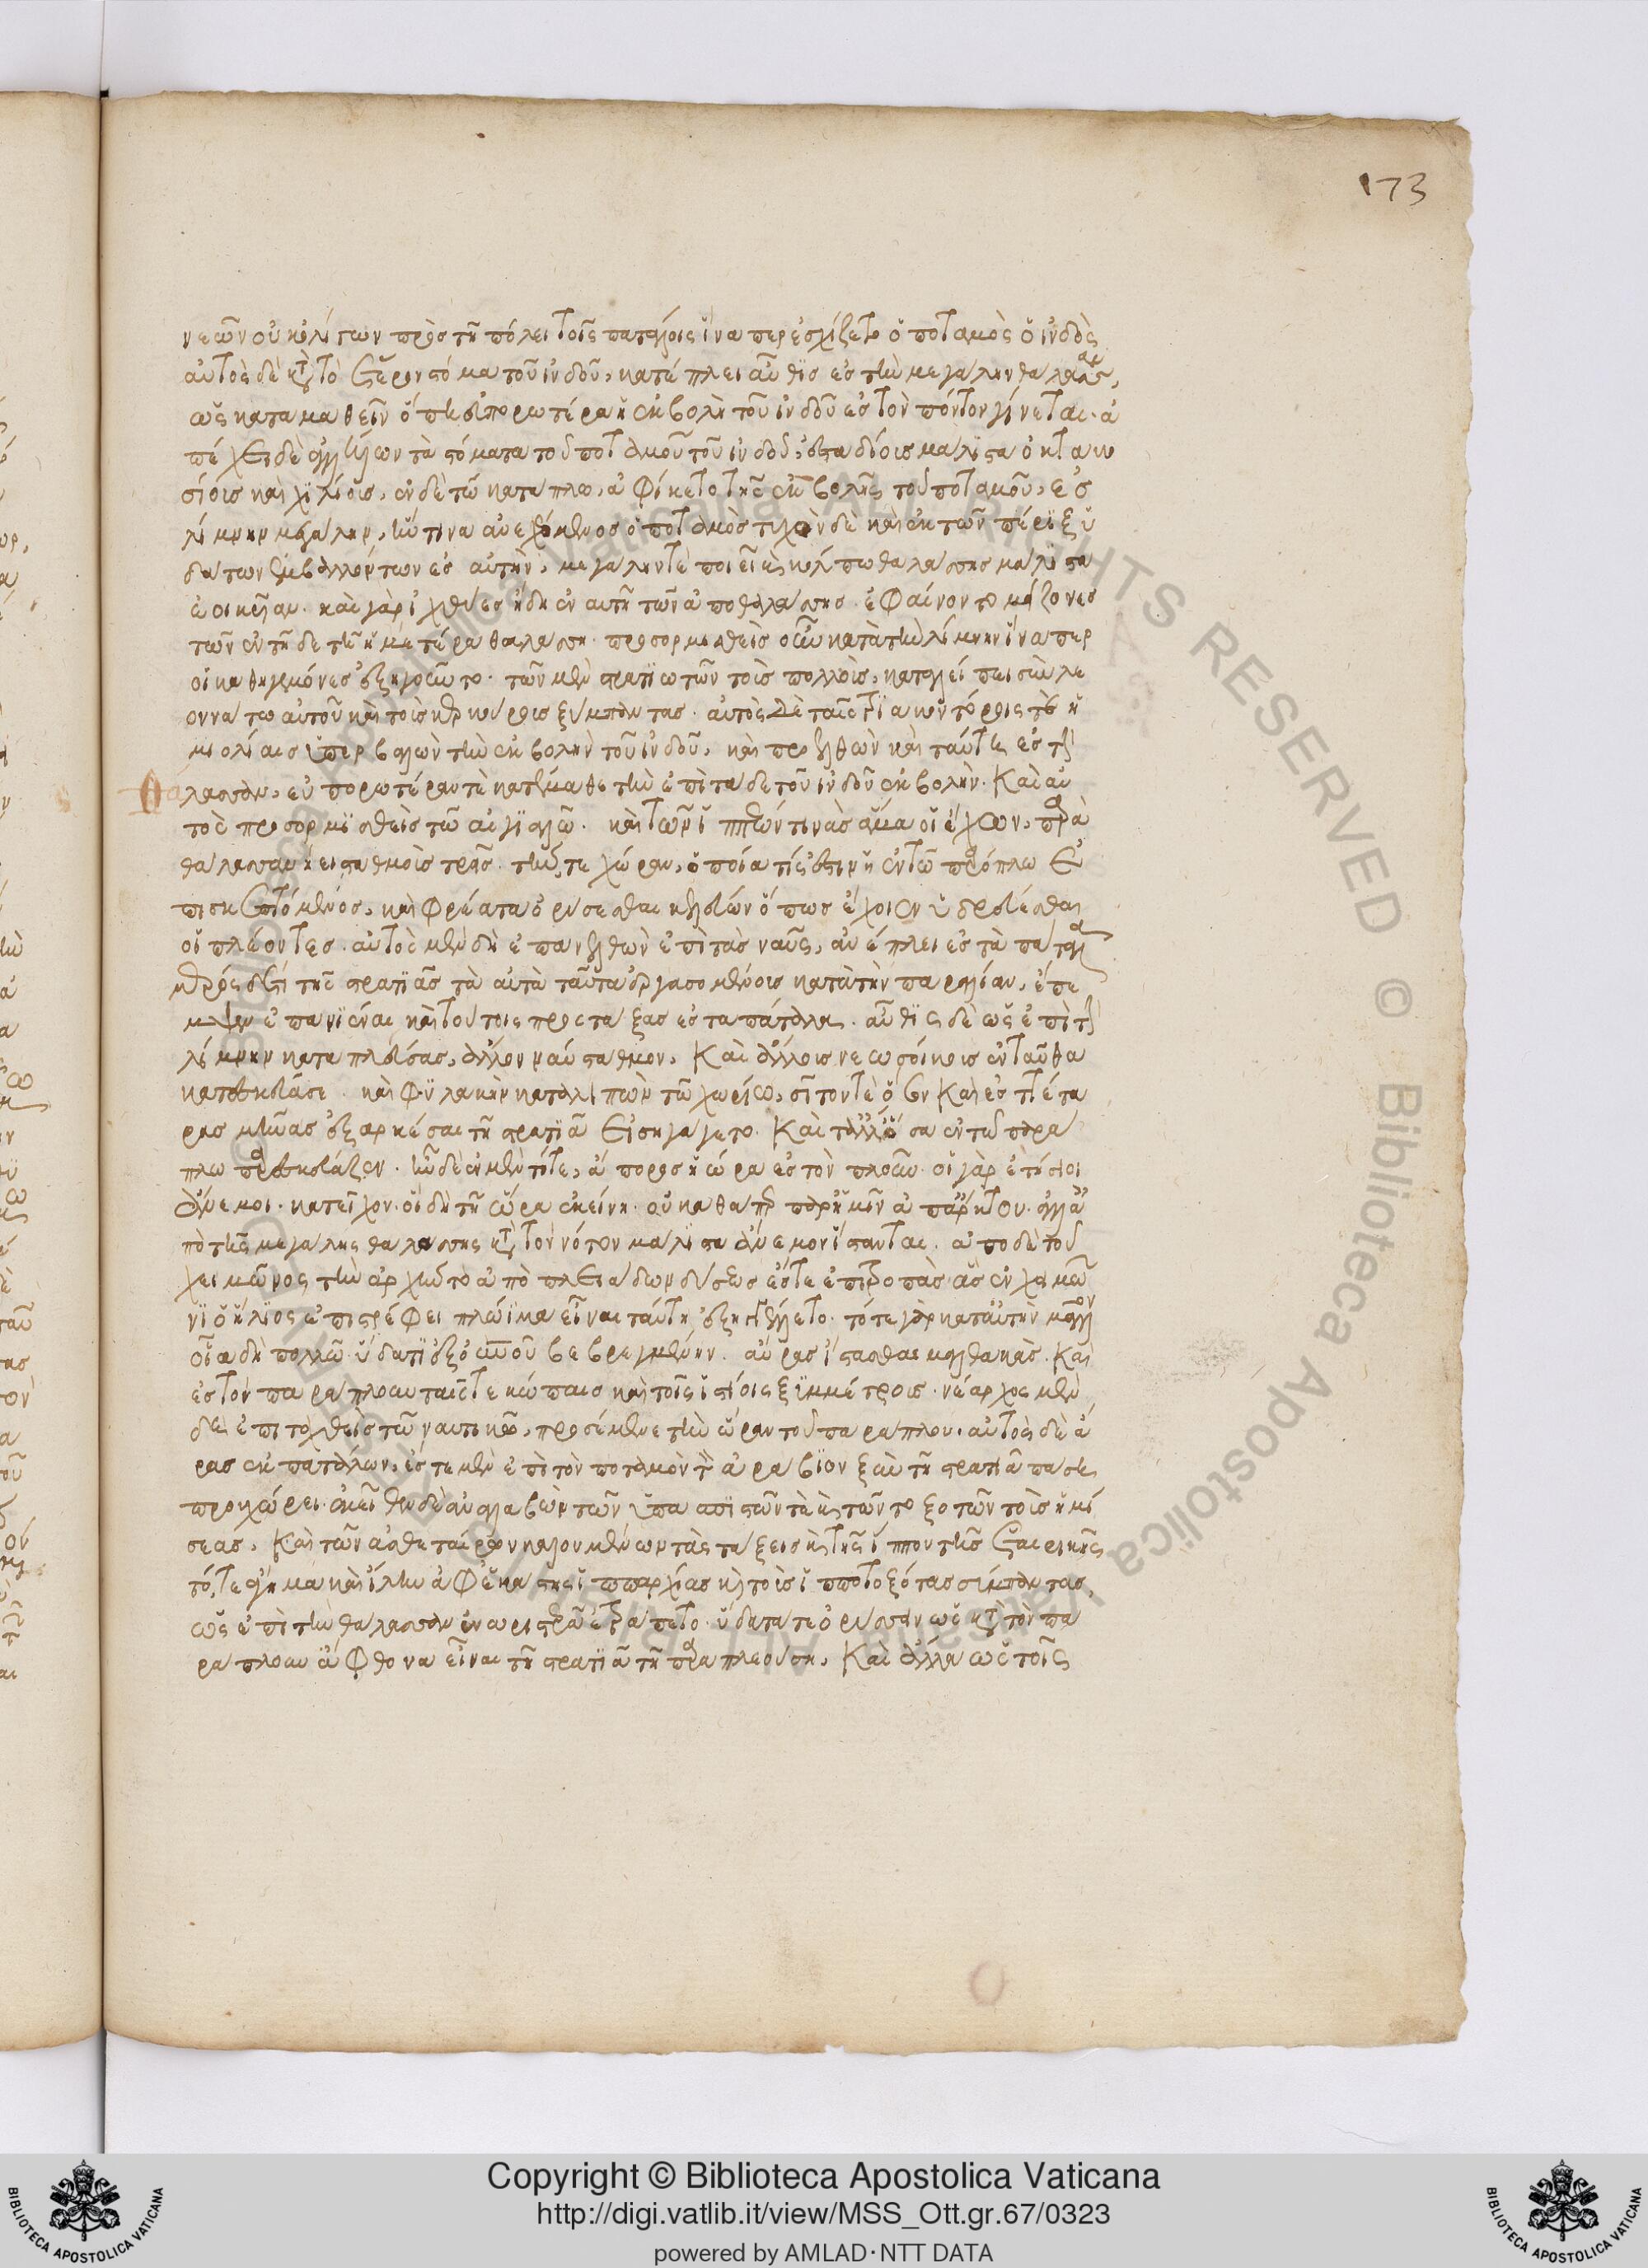 173
νεῶν οὐκ ὀλίγων πρὸς τῆ πόλει τοῖς παταλοις ἵνα περ ἐσχίζετο ὁ ποταμὸς ὁ ἰνδὸς
αὐτὸς δὲ κατὰ τὸ ἕτερον στόμα τοῦ ἰνδοῦ, κατέπλει αὖθις ἐς τὴν μεγάλην θάλασσαν,
ὡς καταμαθεῖν ὅπη εὐπορωτέρα ἡ ἐκβολὴ τοῦ ἰνδοῦ ἐς τὸν πόντον γίνεται. ἀ
πέχει δὲ ἀλλήλων τὰ στόματα τοῦ ποταμοῦ τοῦ ἰνδοῦ, ἐς σταδίους μάλιστα ὀκτακο
σίους καὶ χιλίους, ἐν δὲ τῶ κατάπλω, ἀφίκετο τῆς ἐκβολῆς τοῦ ποταμοῦ, ἐς
λίμνην μεγάλην, ἥντινα ἀναχεόμενος ὁ ποταμὸς τυχὸν δὲ καὶ ἐκ τῶν πέριξ ὑ
δάτων ἐμβαλλόντων ἐς αὐτὴν, μεγάλην τὲ ποιεῖ καὶ κόλπω θαλάσσης μάλιστα
ἐοικυῖαν. καὶ γὰρ ἰχθύες ἤδη ἐν αυτῆ τῶν ἀπὸ θαλάσσης. ἐφαίνοντο μείζονες
τῶν ἐν τῆδε τῆ ἡμετέρα θαλάσση. προσορμισθεὶς οὖν κατὰ τὴν λίμνην ἵνα περ
οἱ καθηγεμόνες ἐξηγοῦντο. τῶν μὲν στρατιωτῶν τοὺς πολλοὺς, καταλείπει σὺν λε
οννάτω αὐτοῦ καὶ τοὺς κερκούρους ξύμπαντας. αὐτὸς δὲ ταῖς τριακοντόροις τὲ καὶ ἡ
μιολίαις ὑπερβαλὼν τὴν ἐκβολὴν τοῦ ἰνδοῦ, καὶ προελθὼν καὶ ταύτη ἐς τὴν
θάλασσαν, εὐπορωτέραν τὲ κατέμαθε τὴν ἐπὶ τάδε τοῦ ἰνδοῦ ἐκβολὴν. Καὶ αὐ
τὸς προσορμισθεὶς τῶ αἰγιαλῶ. καὶ τῶν ἱππέων τινὰς ἅμα οἷ ἔχων, παρὰ
θάλασσαν ἤει σταθμοὺς τρεῖς. τήν τε χώραν, ὁποία τίς ἐστιν ἡ ἐν τῶ παράπλω ἐ
πισκεπτόμενος, καὶ φρέατα ὀρύσσεσθαι κελεύων ὅπως ἔχοιεν ὑδρεύεσθαι
οἱ πλέοντες. αὐτὸς μὲν δὴ ἐπανελθὼν ἐπὶ τὰς ναῦς, ἀνέπλει ἐς τὰ πάταλα
μέρος δέ τι τῆς στρατιᾶς τὰ αὐτὰ ταῦτα ἐργασομένους κατὰ τὴν παραλίαν, ἔπε
μψεν ἐπανιέναι καὶ τούτοις προστάξας ἐς τὰ πάταλα. αὖθις δὲ ὡς ἐπὶ τὴν
λίμνην καταπλεύσας, ἄλλον ναύσταθμον, Καὶ ἄλλους νεωσοίκους ἐνταῦθα
κατεσκεύασε. καὶ φυλακὴν καταλιπὼν τῶ χωρίω, σῖτόν τε ὅσον Καὶ ἐς τέττα
ρας μῆνας ἐξαρκέσαι τῆ στρατιᾶ εἰσηγάγετο. Καὶ τἄλλα ὅσα ἐν τῶ παρα
πλω παρεσκεύαζεν. ἦν δὲ ἐν μὲν τότε, ἄπορος ἡ ὥρα ἐς τὸν πλοῦν. οἱ γὰρ ἐτήσιοι
ἄνεμοι. κατεῖχον. οἳ δὴ τῆ ὥρα ἐκείνη. οὐ καθάπερ παρ' ἡμῖν ἀπ' ἄρκτου. ἀλλ' ἀ
πὸ τῆς μεγάλης θαλάσσης κατὰ τὸν νότον μάλιστα ἄνεμον ἵστανται. ἀπὸ δὲ τοῦ
χειμῶνος τὴν ἀρχὴν τὸ ἀπὸ πλειάδων δύσεως ἔστε ἐπὶ τροπὰς ἃς ἐν χειμῶ
νι ὁ ἥλιος ἐπιστρέφει πλώϊμα εἶναι ταύτη ἐξηγγέλλετο. τότε γὰρ κατ' αὐτὴν μᾶλλον
οἷα δὴ πολλῶ ὕδατι ἐξ οὐνοῦ βεβρεγμένην. αὔρας ἵστασθαι μαλθακὰς. Καὶ
ἐς τὸν παράπλουν ταῖς τε κώπαις καὶ τοῖς ἱστίοις ξυμμέτρους. νέαρχος μὲν
δὴ ἐπιταχθεὶς τῶ ναυτικῶ, προσέμενε τὴν ὥραν τοῦ παράπλου. αὐτὸς δὲ ἄ
ρας ἐκ πατάλων, ἔστε μὲν ἐπὶ τὸν ποταμὸν τὸν ἀράβιον ξὺν τῆ στρατιᾶ πάση
προχώρει. ἐκεῖθεν δὲ ἀναλαβὼν τῶν ὑπασπιστῶν τὲ καὶ τῶν τοξοτῶν τοὺς ἡμί
σεας, Καὶ τῶν ἀσθεταίρων καλουμένων τὰς τάξεις καὶ τῆς ἵππου τῆς ἑταιρικῆς
τό, τε ἄγημα καὶ ἴλην ἀφ' ἑκάστης ἱππαρχίας καὶ τοὺς ἱπποτοξότας σύμπαντας,
ὡς ἐπὶ τὴν θάλασσαν ἐν ἀριστερᾶ ἐτράπετο. ὕδατά τε ὀρύσσειν ὡς κατὰ τὸν πα
ράπλουν ἄφθονα εἶναι τῆ στρατιᾶ τῆ παραπλεούση, Καὶ ἅμα ὡς τοῖς
Copyright © Biblioteca Apostolica Vaticana
http://digi.vatlib.it/view/MSS_Ott.gr.67/0323
powered by AMLAD·NTT DATA
BIBLIOTECA APOSTOLICA VATICANA
BIBLIOTECA APOSTOLICA VATICANA